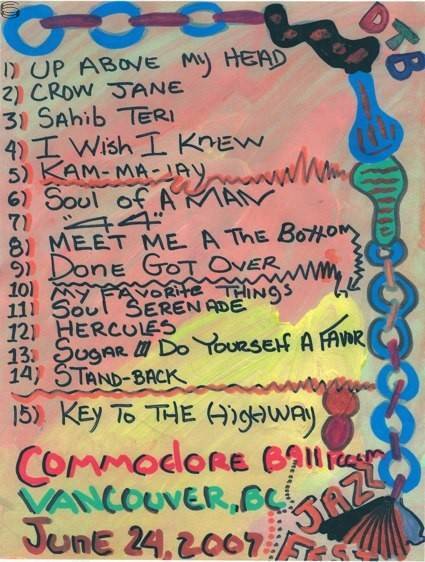 DTB
1) UP ABOVE My HEAD
2) CROW JANE
3) Sahib TERI
4) I Wish I KNEW
5) KAM-MA-LAY
6) Soul of A MAN
7) "44"
8) MEET ME A The Bottom
9) Done GoT OVER
10) My FAVORite THINGS
11) Soul SERENADE
12) HERCULES
13) SUGAR /// Do Yourself A FAVOR
14) STAND-BACK
15) KEY To THE HigHWAy
COMMODORE BAllroom
VANCOUVER, BC
JUNE 24, 2007
JAZZ
FEST